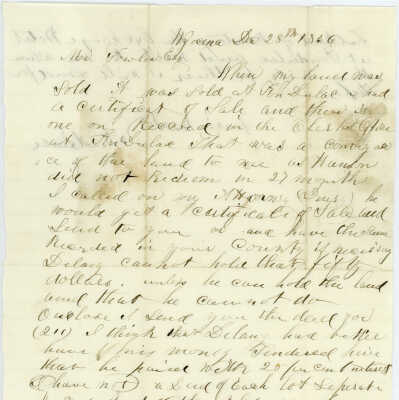 Wyocena Dec 28th 1866
Mr. Fowler Esq
When my land was
Sold it was Sold at Fon Du Lac and
a Certificat of Sale and then is
one on Record in the Clerks Office
at Fon Du Lac that was a convey
ce of the land to me as
did not Redeem in 27 months
I called on my Attorney (Guys) he
would get a Certificate of Sale and
Send to you or and have the same
Recorded in your County if necessary
Delany cannot hold that fifty
dollars unless he can hold the land
and that he can not do
Enclose I Send you the deed for
(211) I think that Delany had better
have his money tendered him
that he paid with 20 per cent interest
(I have not) a Deed of Each lot Seperate